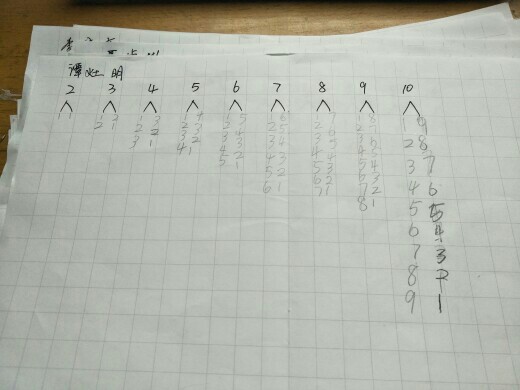 谭灶明
2 3 4 5 6 7 8 9 10
1 1 1 2 1 3 1 4 1 5 1 6 1 7 1 8 1 9
2 1 2 2 2 3 2 4 2 5 2 6 2 7 2 8
3 1 3 2 3 3 3 4 3 5 3 6 3 7
4 1 4 2 4 3 4 4 4 5 4 6
5 1 5 2 5 3 5 4 5 5
6 1 6 2 6 3 6 4
7 1 7 2 7 3
8 1 8 2
9 1